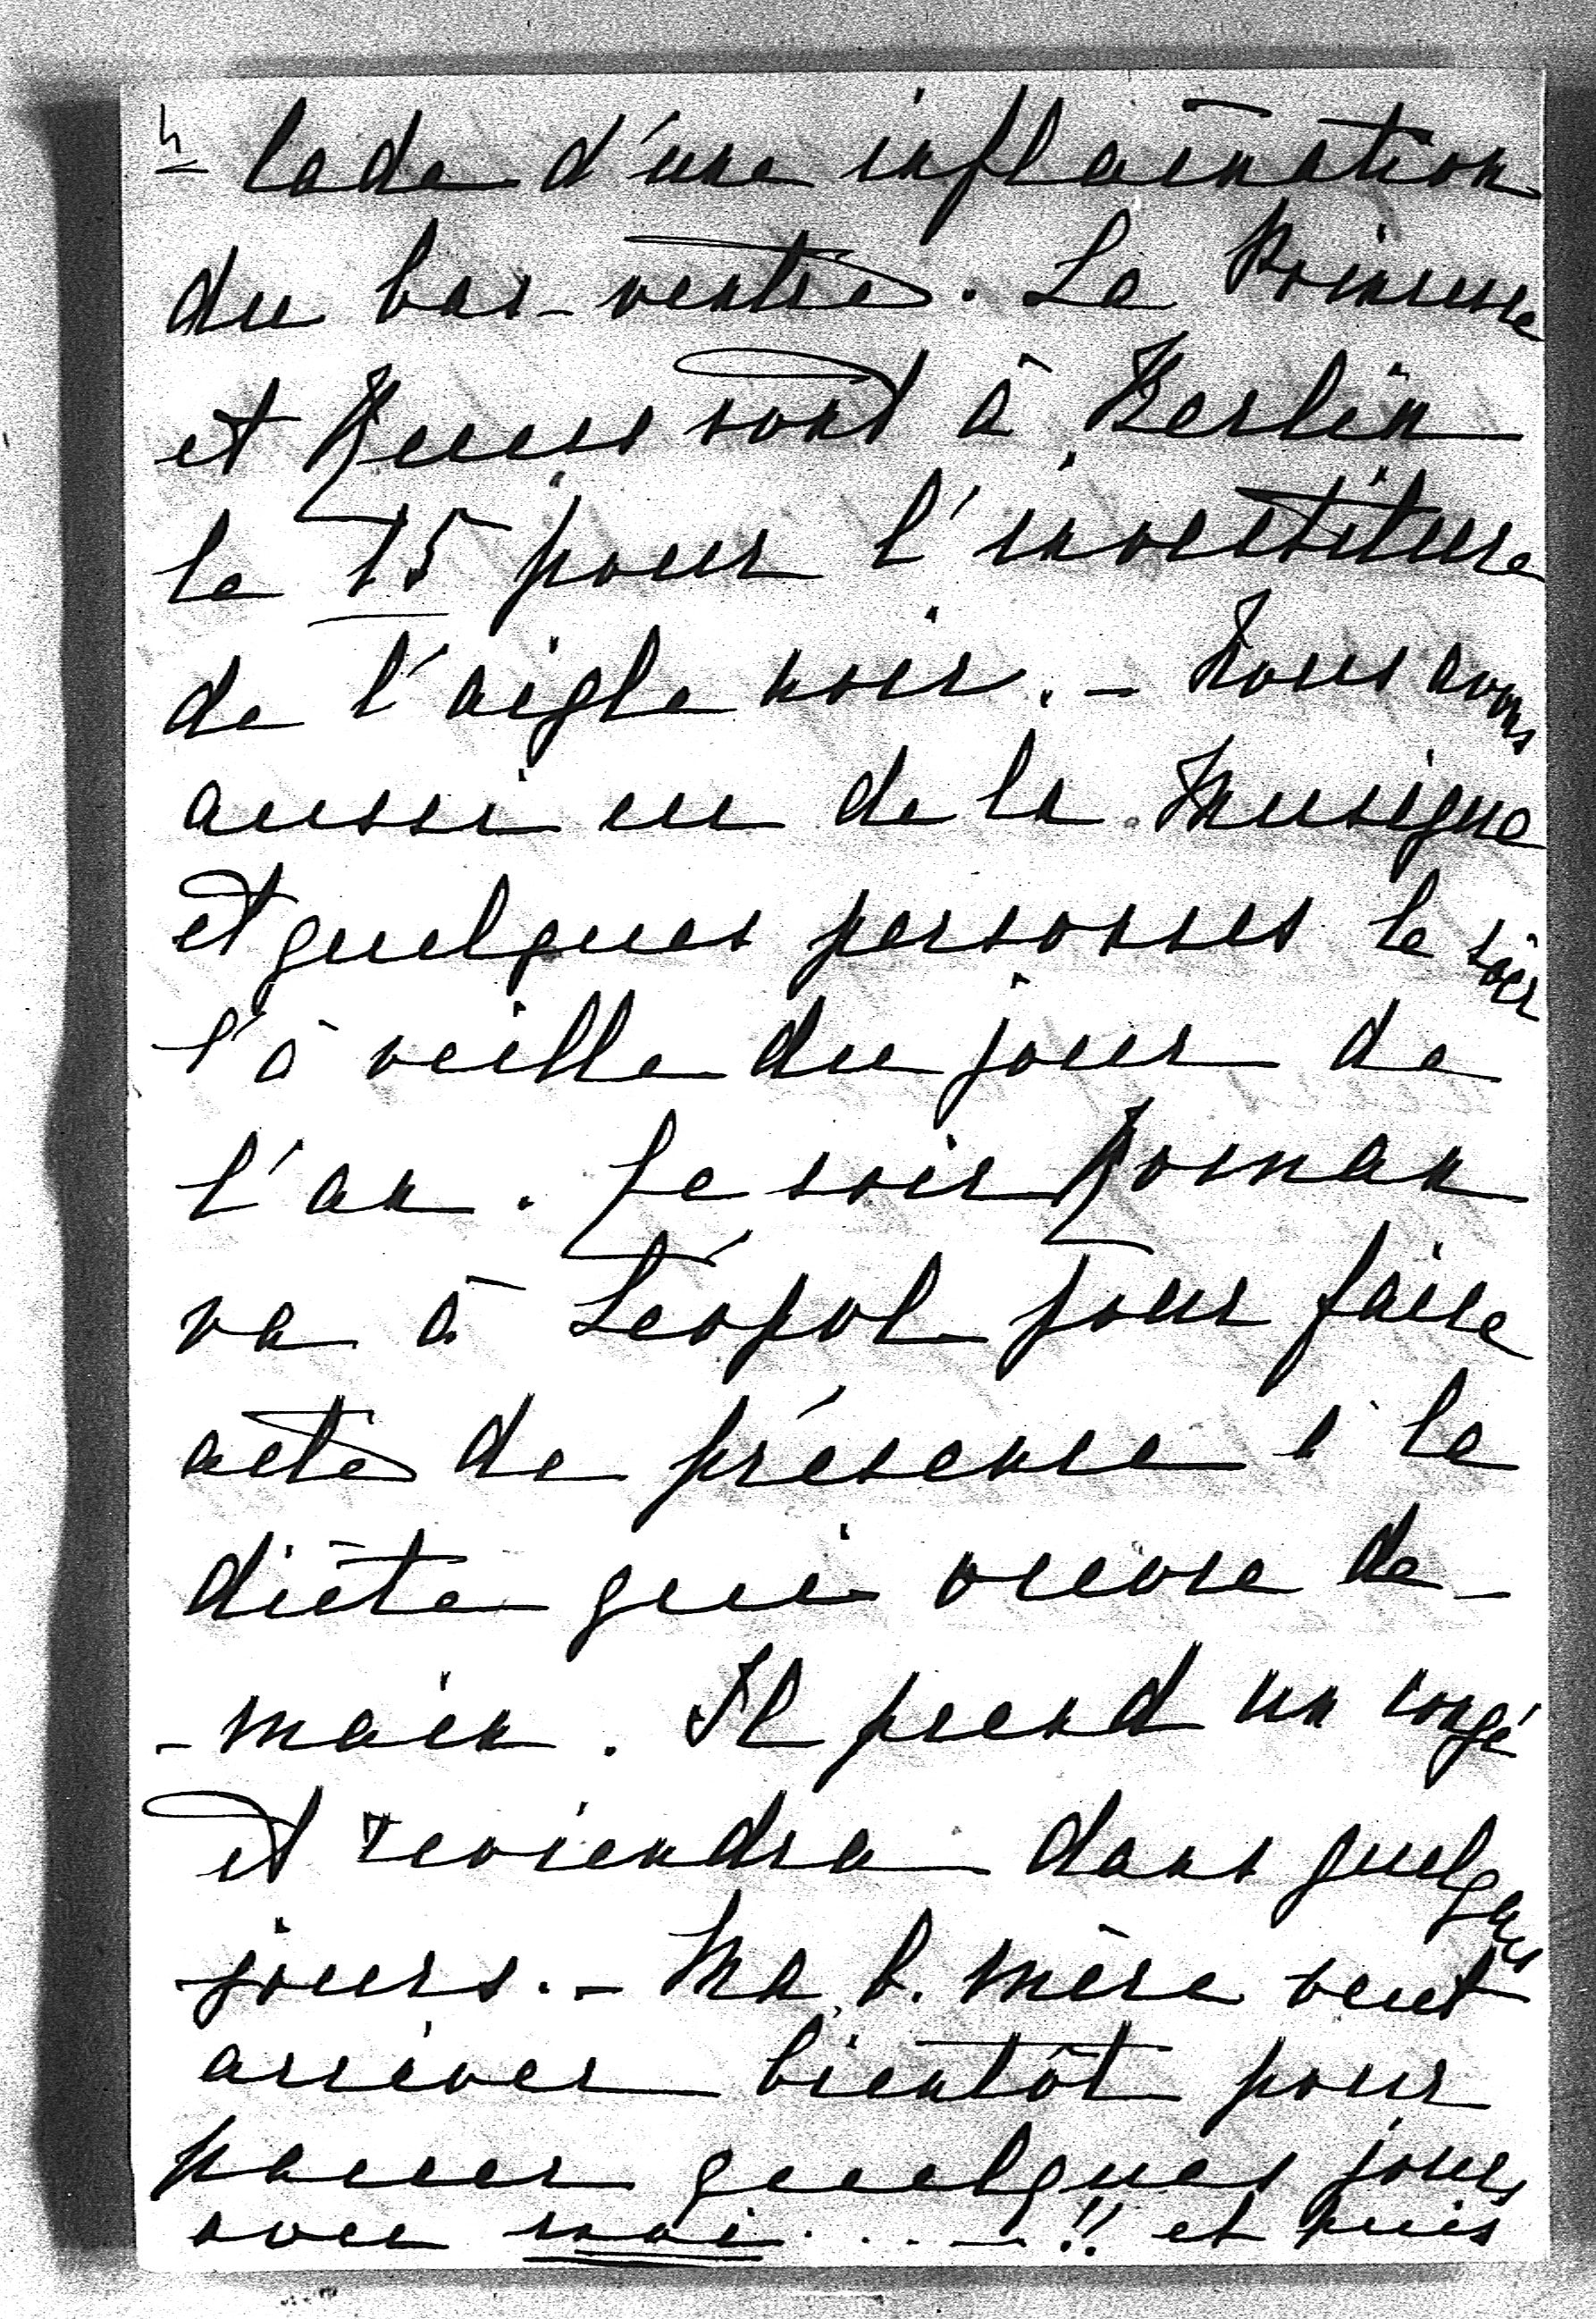 - lade d'une inflamation
du bas-ventre. La Princesse
et Reuss sont à Berlin
le 15 pour l'investiture
de l'aigle noir. - Nous avons
aussi eu de la Musique
et quelques personnes le soir
l'à veille du jour de
l'an. Ce soir Roman
va à Léopol pour faire
acte de présence à la
diète qui ouvre de-
-main. Il prend un congé
et reviendra dans quelques
jours. - Ma b. mère veut
arriver bientôt pour
passer quelques jours
avec moi ... - !! et puis